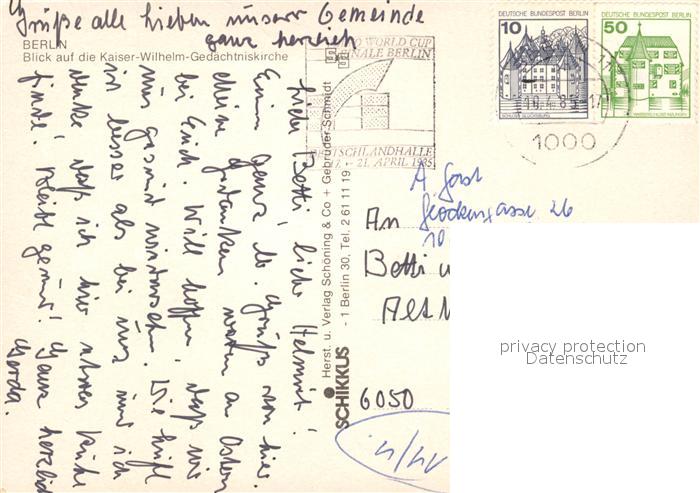 Grüße alle lieben unserer Gemeinde
ganz herzlich
BERLIN
Blick auf die Kaiser-Wilhelm-Gedächtniskirche
Liebe Betti, lieber Helmut!
Einen ganz lb. Gruß von hier.
Meine Gedanken waren an Ostern
bei Euch. Will hoffen, daß wir
uns gesund wiedersehen. Die Luft
ist besser als bei uns und ich
denke, daß ich hier etwas Ruhe
finde. Bleibt gesund! Ganz herzlich
Gerda.
Herst. u. Verlag Schöning & Co + Gebrüder Schmidt
- 1 Berlin 30, Tel. 2 61 11 19
SCHIKKUS
WORLD CUP
FINALE BERLIN
DEUTSCHLANDHALLE
21. APRIL 1985
DEUTSCHE BUNDESPOST BERLIN
10
SCHLOSS GLÜCKSBURG
DEUTSCHE BUNDESPOST BERLIN
50
WASSERSCHLOSS INZLINGEN
1000
Glockengasse 26
10
An
Betti u
6050
privacy protection
Datenschutz